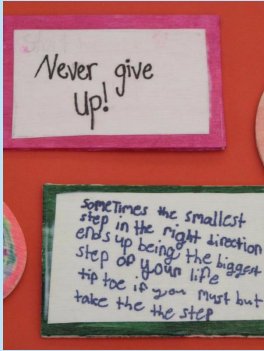 Never give
Up!
sometimes the smallest
step in the right direction
ends up being the biggest
step of your life
tip toe if you must but
take the the step